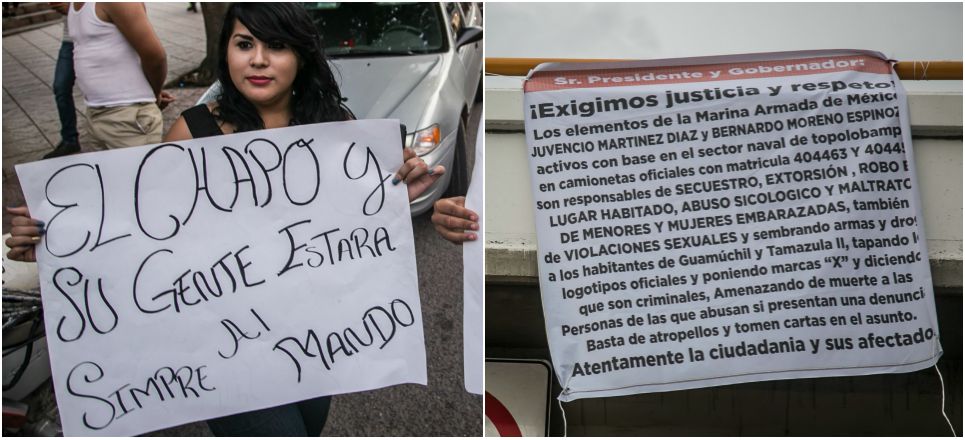 EL CHAPO y
SU GENTE ESTARA
SIMPRE AL
MANDO
Sr. Presidente y Gobernador:
¡Exigimos justicia y respeto!
Los elementos de la Marina Armada de México
JUVENCIO MARTINEZ DIAZ y BERNARDO MORENO ESPINOZ
activos con base en el sector naval de topolobamp
en camionetas oficiales con matricula 404463 Y 4044
son responsables de SECUESTRO, EXTORSIÓN , ROBO E
LUGAR HABITADO, ABUSO SICOLOGICO Y MALTRATO
DE MENORES Y MUJERES EMBARAZADAS, también
de VIOLACIONES SEXUALES y sembrando armas y drog
a los habitantes de Guamúchil y Tamazula II, tapando l
logotipos oficiales y poniendo marcas “X” y diciendo
que son criminales, Amenazando de muerte a las
Personas de las que abusan si presentan una denunci
Basta de atropellos y tomen cartas en el asunto.
Atentamente la ciudadanía y sus afectado